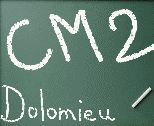 CM2
Dolomieu